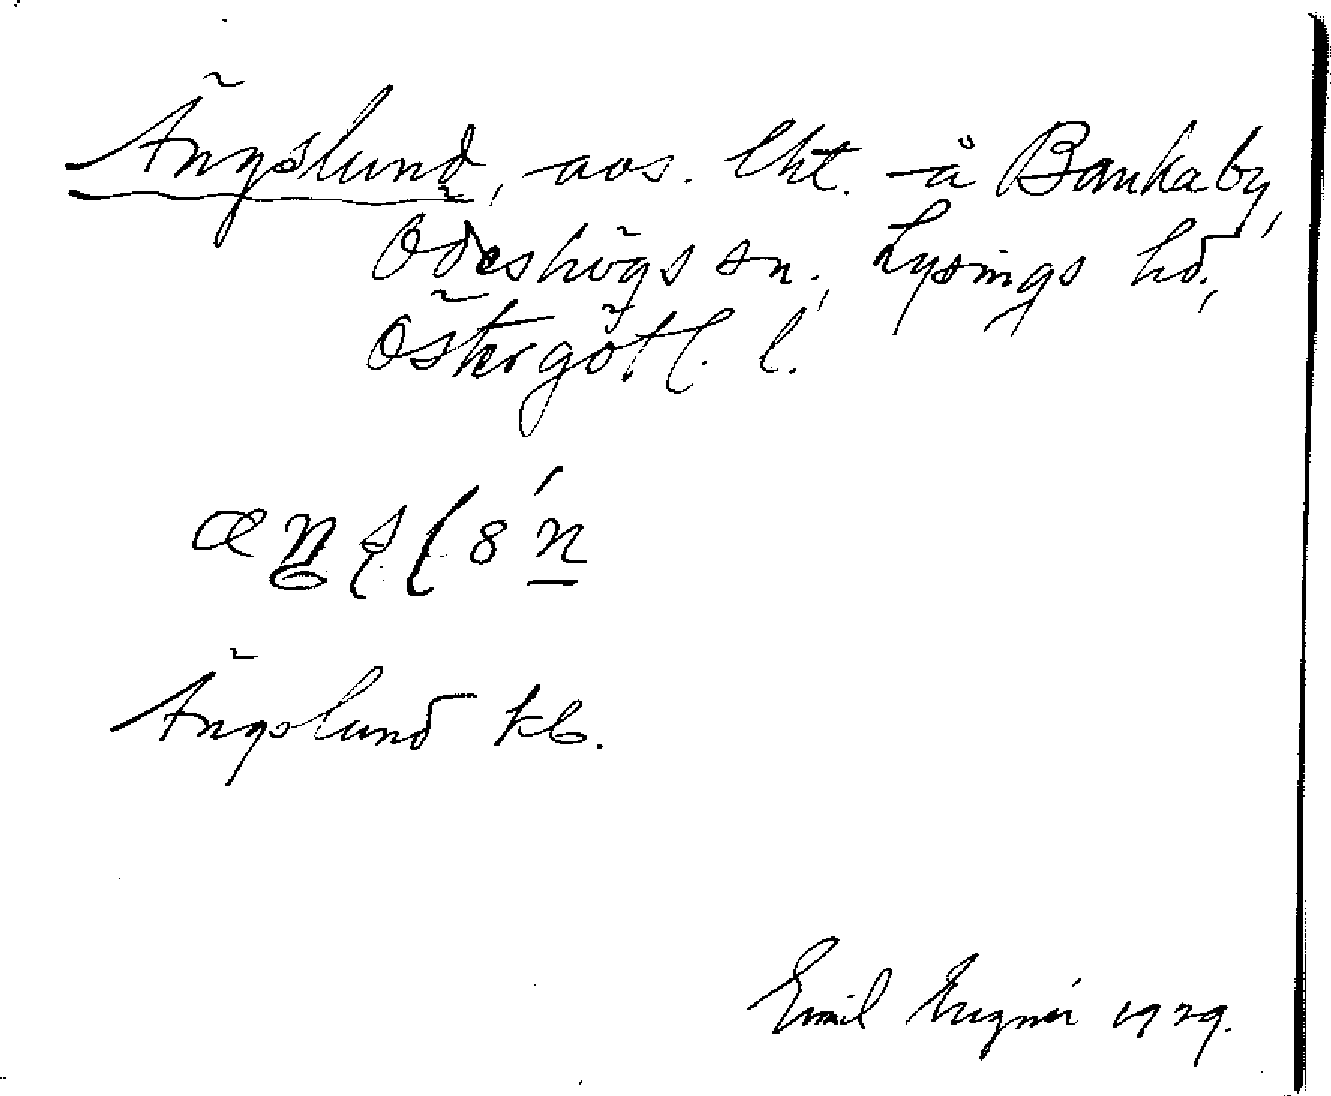 Ängslund, avs. lht. å Bankaby,
Ödeshögs sn., Lysings hd.,
Östergötl. l.
Ängslund kb.
Emil 1929.